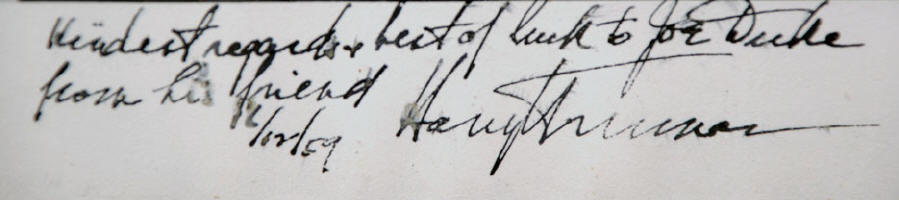 Kindest regards & best of luck to Joe Duke
from his friend Harry Truman
12/12/59